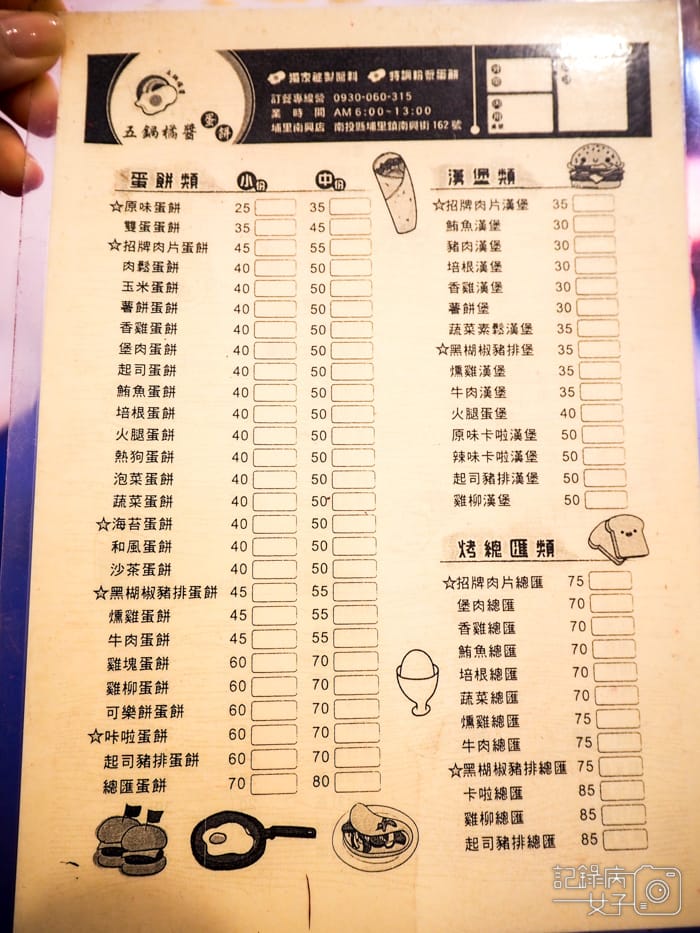 五鍋橘醬 蛋餅
獨家秘製醬料 特調粉漿蛋餅
訂餐專線營 0930-060-315
業 時 間 AM 6:00~13:00
埔里南興店 南投縣埔里鎮南興街162號
蛋餅類 小份 中份
☆原味蛋餅 25 35
雙蛋蛋餅 35 45
☆招牌肉片蛋餅 45 55
肉鬆蛋餅 40 50
玉米蛋餅 40 50
薯餅蛋餅 40 50
香雞蛋餅 40 50
堡肉蛋餅 40 50
起司蛋餅 40 50
鮪魚蛋餅 40 50
培根蛋餅 40 50
火腿蛋餅 40 50
熱狗蛋餅 40 50
泡菜蛋餅 40 50
蔬菜蛋餅 40 50
☆海苔蛋餅 40 50
和風蛋餅 40 50
沙茶蛋餅 40 50
☆黑糊椒豬排蛋餅 45 55
燻雞蛋餅 45 55
牛肉蛋餅 45 55
雞塊蛋餅 60 70
雞柳蛋餅 60 70
可樂餅蛋餅 60 70
☆咔啦蛋餅 60 70
起司豬排蛋餅 60 70
總匯蛋餅 70 80
漢堡類
☆招牌肉片漢堡 35
鮪魚漢堡 30
豬肉漢堡 30
培根漢堡 30
香雞漢堡 30
薯餅堡 30
蔬菜素鬆漢堡 35
☆黑糊椒豬排堡 35
燻雞漢堡 35
牛肉漢堡 35
火腿蛋堡 40
原味卡啦漢堡 50
辣味卡啦漢堡 50
起司豬排漢堡 50
雞柳漢堡 50
烤總匯類
☆招牌肉片總匯 75
堡肉總匯 70
香雞總匯 70
鮪魚總匯 70
培根總匯 70
蔬菜總匯 70
燻雞總匯 75
牛肉總匯 75
☆黑糊椒豬排總匯 75
卡啦總匯 85
雞柳總匯 85
起司豬排總匯 85
記錄病
女子